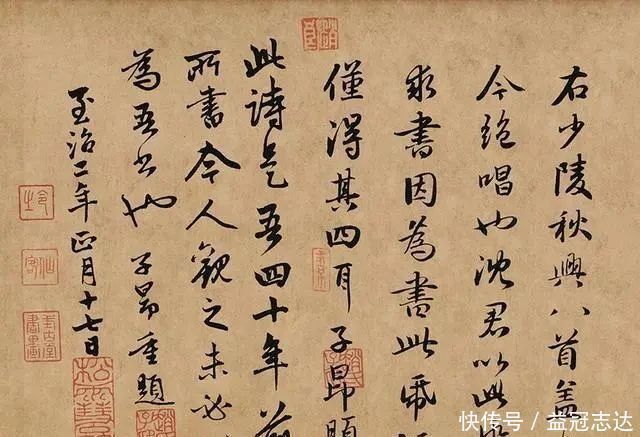 右少陵秋興八首盖
今絶唱也沈君以此
求書因為書此
僅得其四耳子昂題
此詩是吾四十年前
所書今人觀之未必
為吾書也 子昂重題
至治二年正月十七日
快传号 / 益冠志达